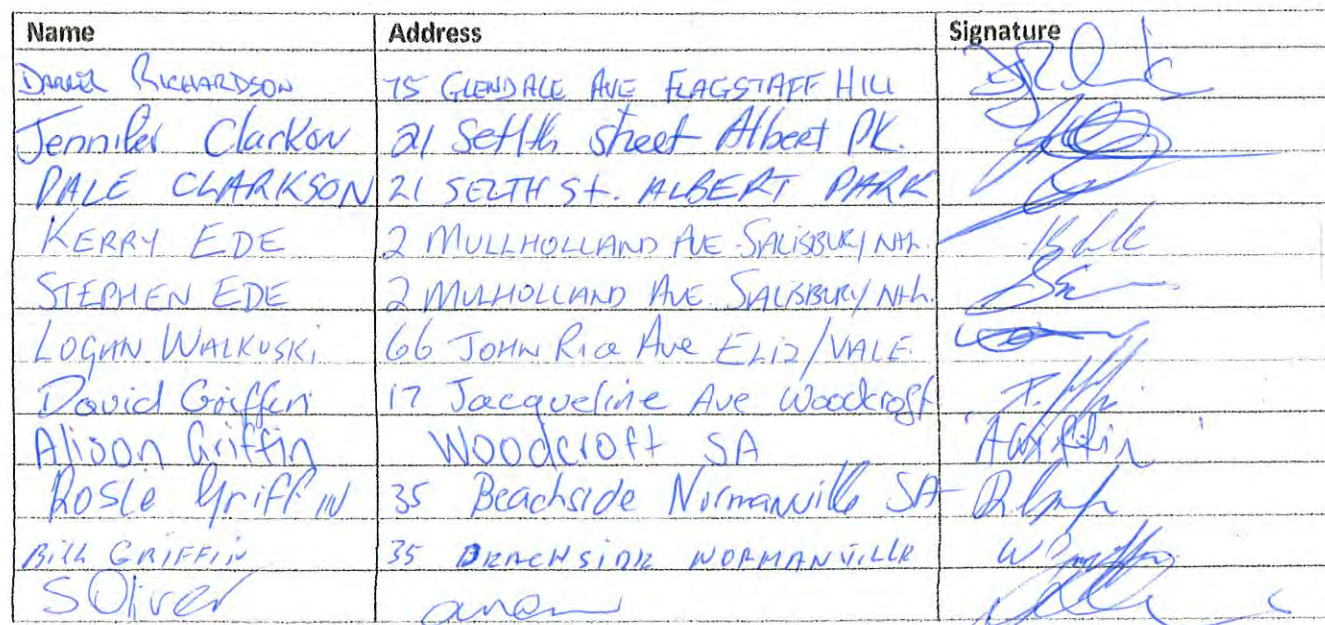 Name Address Signature
RICHARDSON 75 GLENDALE AVE FLAGSTAFF HILL
Jennifer Clarkon 21 street Albert PK.
DALE CLARKSON 21 SELTH St. ALBERT PARK
KERRY EDE 2 MULLHOLLAND AVE SALISBURY NTH.
STEPHEN EDE 2 MULHOLLAND AVE SALISBURY NTH.
LOGAN WALKUSKI 66 JOHN RICE AVE ELIZ/VALE.
David Griffin 17 Jacqueline Ave Woodcroft
Alison Griffin Woodcroft SA AGriffin
Rosie Griffin 35 Beachside Normanville SA
BILL GRIFFIN 35 BEACHSIDE NORMANVILLE
S Oliver